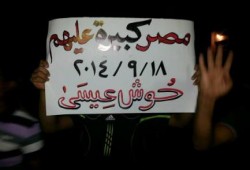 مصر كبيرة عليهم
٢٠١٤/٩/١٨
حوش عيسى